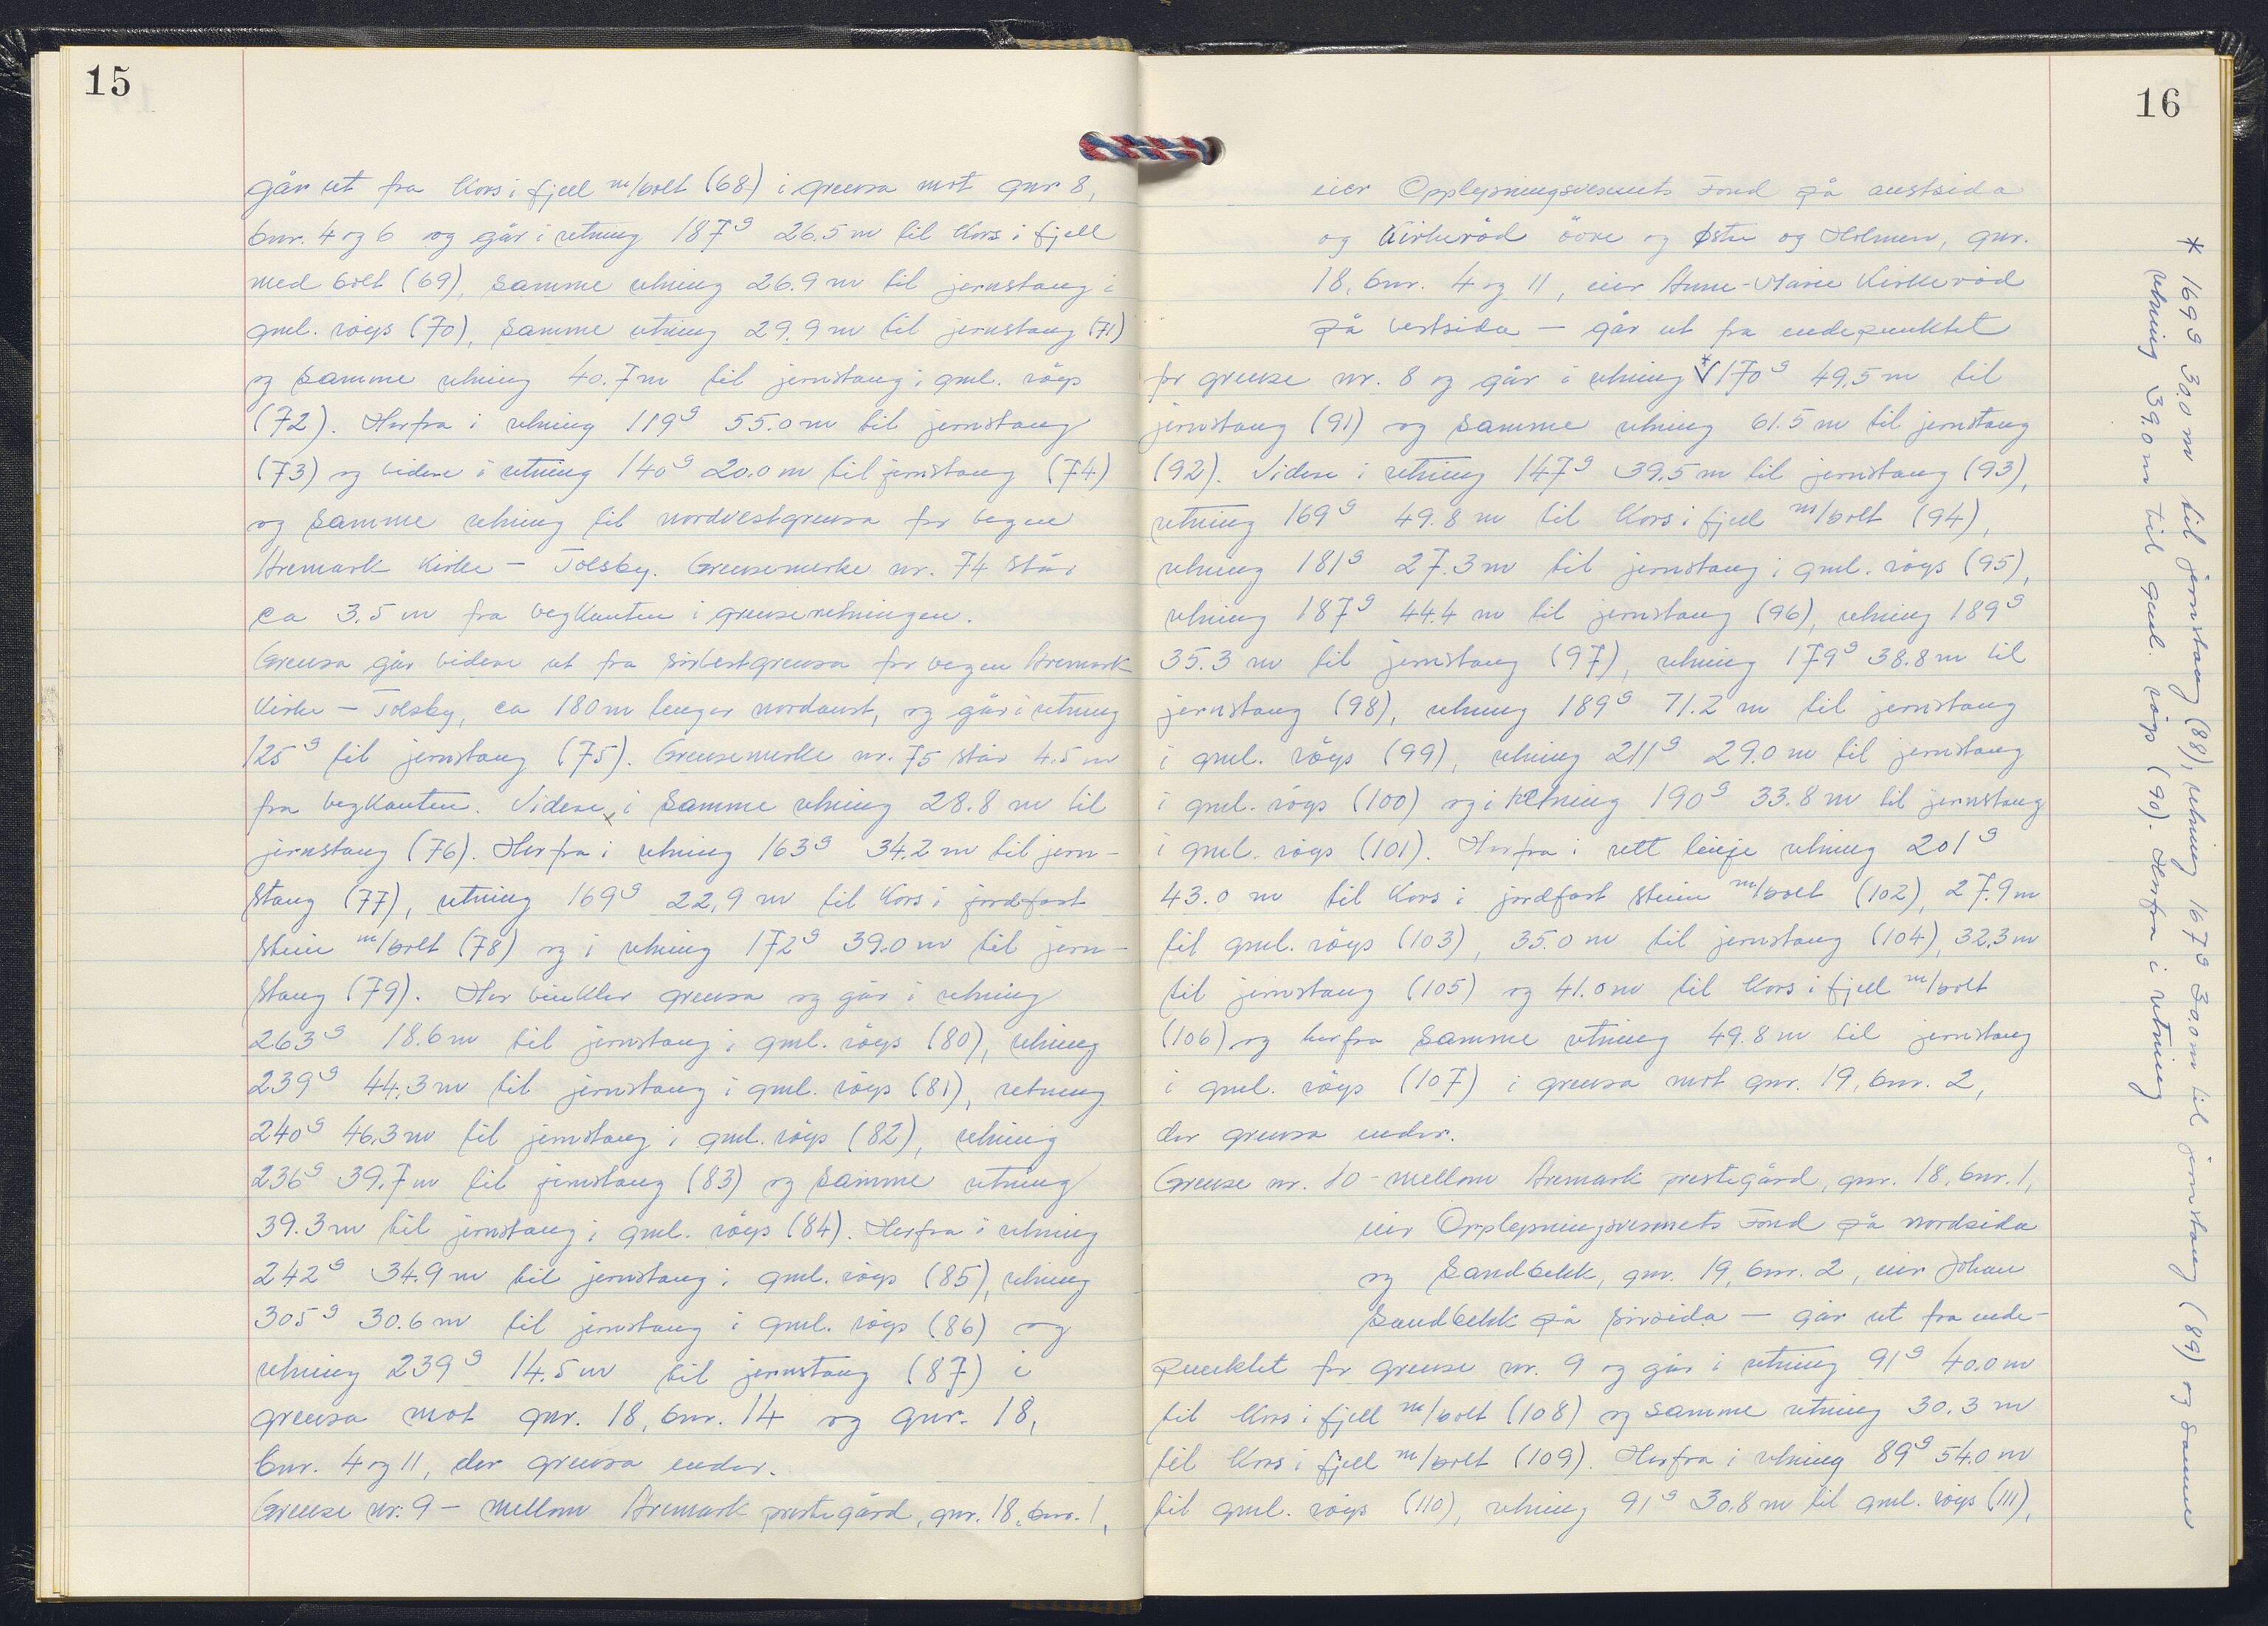 15
går ut fra kors i fjell m/bolt (68) i grensa mot gnr 8,
bnr. 4 og 6 og går i retning 187g 26.5 m til kors i fjell
med bolt (69), samme retning 26.9 m til jernstang i
gml. röys (70), samme retning 29.9 m til jernstang (71)
og samme retning 40.7 m til jernstang i gml. röys
(72). Herfra i retning 119g 55.0 m til jernstang
(73) og videre i retning 140g 20.0 m til jernstang (74)
og samme retning til nordvestgrensa for vegen
Aremark kirke – Tolsby. Grensemerke nr. 74 står
ca 3.5 m fra vegkanten i grenseretningen.
Grensa går videre ut fra sörvestgrensa for vegen Aremark
kirke – Tolsby, ca 180 m lenger nordaust, og går i retning
125g til jernstang (75). Grensemerke nr. 75 står 4.5 m
fra vegkanten. Videre i samme retning 28.8 m til
jernstang (76). Herfra i retning 163g 34.2 m til jern-
stang (77), retning 169g 22,9 m til kors i jordfast
stein m/bolt (78) og i retning 172g 39.0 m til jern-
stang (79). Her vinkler grensa og går i retning
263g 18.6 m til jernstang i gml. röys (80), retning
239g 44.3 m til jernstang i gml. röys (81), retning
240g 46.3 m til jernstang i gml. röys (82), retning
236g 39.7 m til jernstang (83) og samme retning
39.3 m til jernstang i gml. röys (84). Herfra i retning
242g 34.9 m til jernstang i gml. röys (85), retning
305g 30.6 m til jernstang i gml. röys (86) og
retning 239g 14.5 m til jernstang (87) i
grensa mot gnr. 18, bnr. 14 og gnr. 18,
bnr. 4 og 11, der grensa ender.
Grense nr. 9 – mellom Aremark prestegård, gnr. 18, bnr. 1,
16
eier Opplysningsvesenets Fond på austsida
og Kirkeröd övre og Østre og Holmen, gnr.
18, bnr. 4 og 11, eier Anne-Marie Kirkeröd
på vestsida – går ut fra endepunktet
for grense nr. 8 og går i retning * 170g 49.5 m til
jernstang (91) og samme retning 61.5 m til jernstang
(92). Videre i retning 147g 39.5 m til jernstang (93),
retning 169g 49.8 m til kors i fjell m/bolt (94),
retning 181g 27.3 m til jernstang i gml. röys (95),
retning 187g 44.4 m til jernstang (96), retning 189g
35.3 m til jernstang (97), retning 179g 38.8 m til
jernstang (98), retning 189g 71.2 m til jernstang
i gml. röys (99), retning 211g 29.0 m til jernstang
i gml. röys (100) og i retning 190g 33.8 m til jernstang
i gml. röys (101). Herfra i rett linje retning 201g
43.0 m til kors i jordfast stein m/bolt (102), 27.9 m
til gml. röys (103), 35.0 m til jernstang (104), 32.3 m
til jernstang (105) og 41.0 m til kors i fjell m/bolt
(106) og herfra samme retning 49.8 m til jernstang
i gml. röys (107) i grensa mot gnr. 19, bnr. 2,
der grensa ender.
Grense nr. 10 – mellom Aremark prestegård, gnr. 18, bnr. 1,
eier Opplysningsvesenets Fond på nordsida
og Sandbekk, gnr. 19, bnr. 2, eier Johan
Sandbekk på sörsida – går ut fra ende-
punktet for grense nr. 9 og går i retning 91g 40.0 m
til kors i fjell m/bolt (108) og samme retning 30.3 m
til kors i fjell m/bolt (109). Herfra i retning 89g 54.0 m
til gml. röys (110), retning 91g 30.8 m til gml. röys (111),
* 169g 30.0 m til jernstang (88), retning 167g 30.0 m til jernstang (89) og samme
retning 39.0 m til gml. röys (90). Herfra i retning